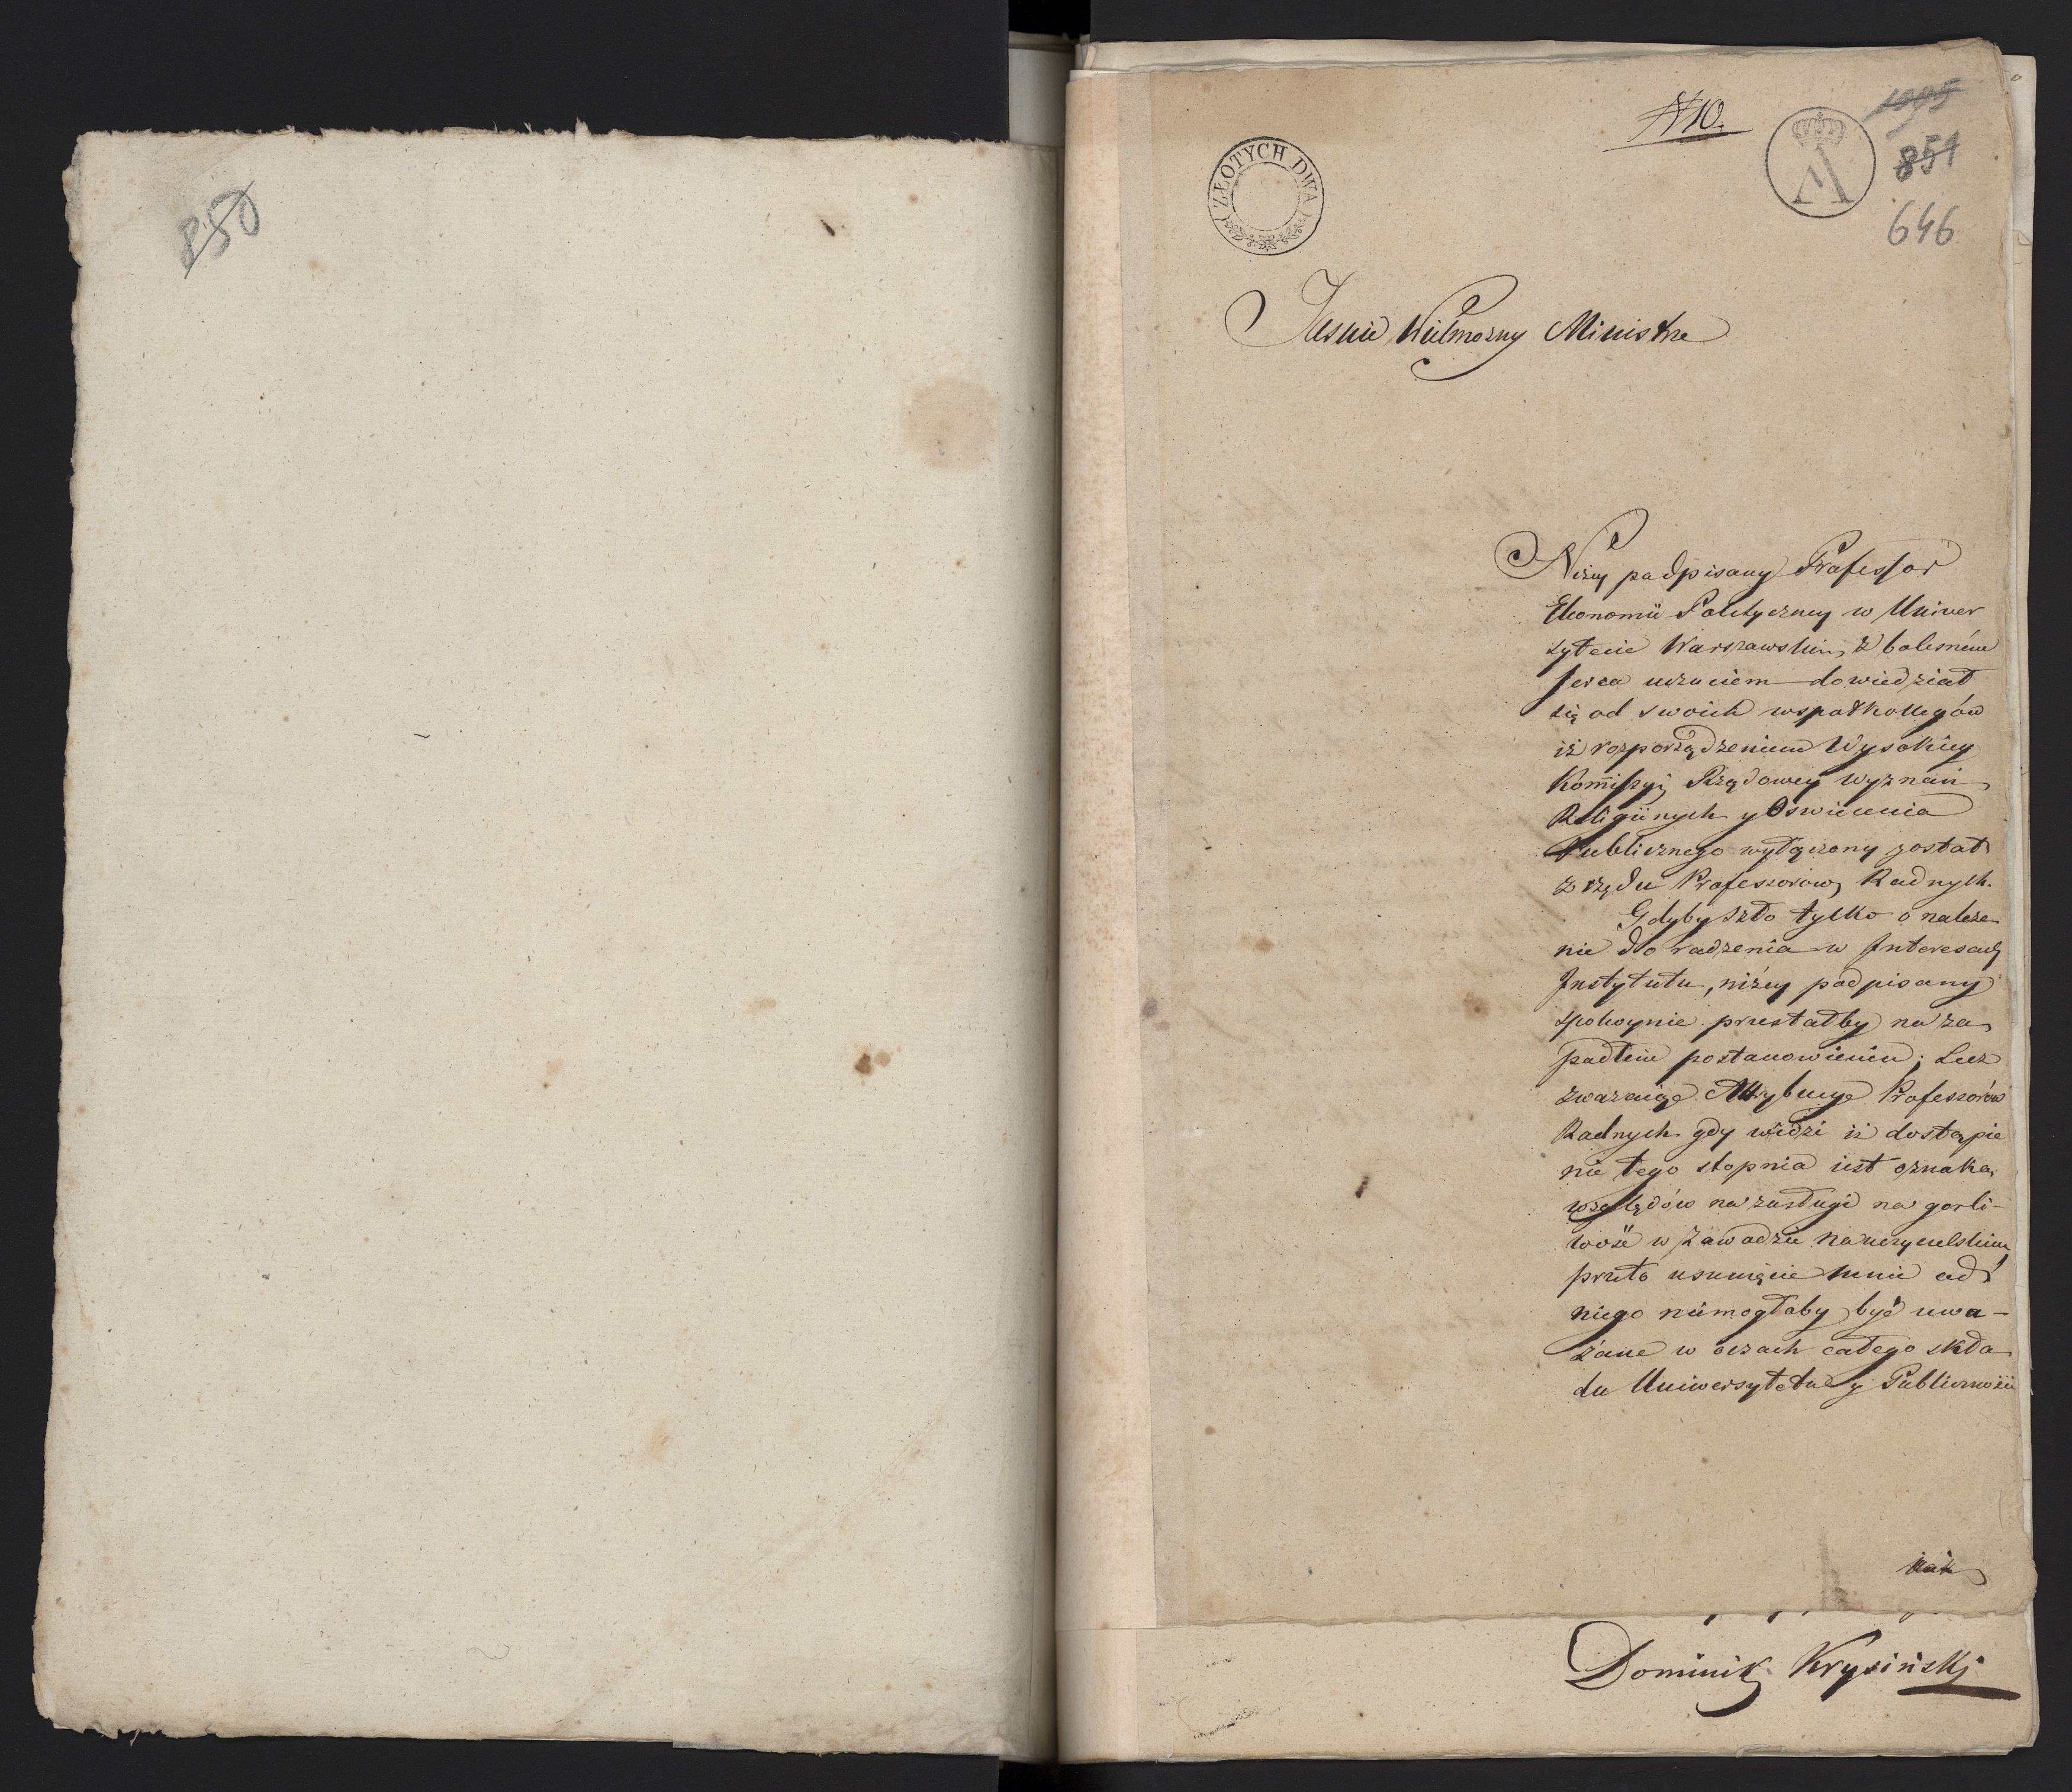 850
N 10.
1005
851
646
ZŁOTYCH DWA
A
Jasnie Wielmożny Ministrze
Niżey podpisany Professor
Ekonomii Polityczney w Uniwer
sytecie Warszawskim, z bolesném
serca uczuciem dowiedział
się od swoich współkollegów
iż rozporządzeniem Wysokiey
Kommissyi Rządowey Wyznań
Religiinych y Oswiecenia
Publicznego wyłączony został
z rzędu Professorow Radnych.
Gdyby szło tylko o należe
nie do radzenia w Interesach
Instytutu, niżey podpisany
spokoynie przestałby na za
padłem postanowieniu; Lecz
zważaiąc Attrybucye Professorów
Radnych gdy widzi iż dostąpie
nie tego stopnia iest oznaką
względów na zasługi na gorli-
wość w zawodzie nauczycielskim
przeto usunięcie mnie od
niego niemogłoby być uwa-
żane w oczach całego skła
du Uniwersytetu y Publicznośći
iak
Dominik Krysiński